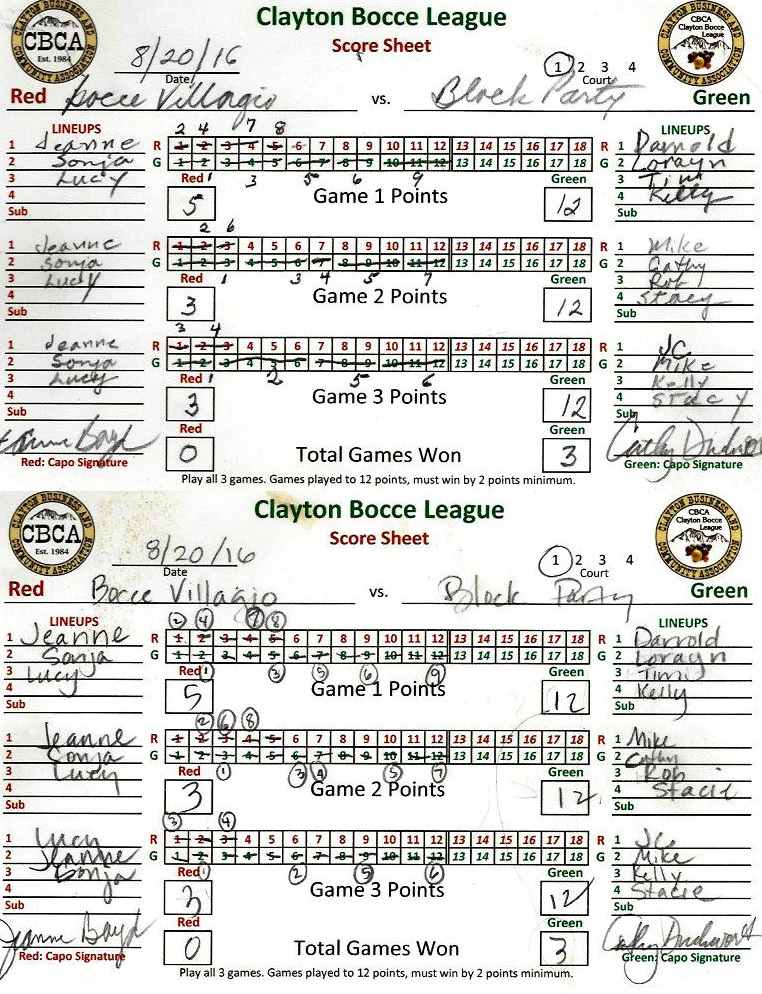 Clayton Bocce League
Score Sheet
CLAYTON BUSINESS AND COMMUNITY ASSOCIATION
CBCA
Est. 1984
CLAYTON BOCCE LEAGUE
CBCA
Clayton Bocce
League
8/20/16
Date
1 2 3 4
Court
Red Bocce Villagio vs. Block Party Green
LINEUPS LINEUPS
2 4 7 8
1 Jeanne R 1 2 3 4 5 6 7 8 9 10 11 12 13 14 15 16 17 18 R 1 Darrold
2 Sonja G 1 2 3 4 5 6 7 8 9 10 11 12 13 14 15 16 17 18 G 2 Lorayn
3 Lucy Red 1 3 5 6 9 Green 3 Tim
4 5 Game 1 Points 12 4 Kelly
Sub Sub
2 6
1 Jeanne R 1 2 3 4 5 6 7 8 9 10 11 12 13 14 15 16 17 18 R 1 Mike
2 Sonja G 1 2 3 4 5 6 7 8 9 10 11 12 13 14 15 16 17 18 G 2 Cathy
3 Lucy Red 1 3 4 5 7 Green 3 Rob
4 3 Game 2 Points 12 4 Stacey
Sub Sub
3 4
1 Jeanne R 1 2 3 4 5 6 7 8 9 10 11 12 13 14 15 16 17 18 R 1 JC
2 Sonja G 1 2 3 4 5 6 7 8 9 10 11 12 13 14 15 16 17 18 G 2 Mike
3 Lucy Red 1 2 5 6 Green 3 Kelly
4 3 Game 3 Points 12 4 Stacy
Sub Sub
Red Green
Jeanne Boyd 0 Total Games Won 3 Cathy
Red: Capo Signature Green: Capo Signature
Play all 3 games. Games played to 12 points, must win by 2 points minimum.
Clayton Bocce League
Score Sheet
CLAYTON BUSINESS AND COMMUNITY ASSOCIATION
CBCA
Est. 1984
CLAYTON BOCCE LEAGUE
CBCA
Clayton Bocce
League
8/20/16
Date
1 2 3 4
Court
Red Bocce Villagio vs. Block Party Green
LINEUPS LINEUPS
2 4 7 8
1 Jeanne R 1 2 3 4 5 6 7 8 9 10 11 12 13 14 15 16 17 18 R 1 Darrold
2 Sonja G 1 2 3 4 5 6 7 8 9 10 11 12 13 14 15 16 17 18 G 2 Lorayn
3 Lucy Red 1 3 5 6 9 Green 3 Tim
4 5 Game 1 Points 12 4 Kelly
Sub Sub
2 6 8
1 Jeanne R 1 2 3 4 5 6 7 8 9 10 11 12 13 14 15 16 17 18 R 1 Mike
2 Sonja G 1 2 3 4 5 6 7 8 9 10 11 12 13 14 15 16 17 18 G 2 Cathy
3 Lucy Red 1 3 4 5 7 Green 3 Rob
4 3 Game 2 Points 12 4 Stacie
Sub Sub
3 4
1 Lucy R 1 2 3 4 5 6 7 8 9 10 11 12 13 14 15 16 17 18 R 1 JC
2 Jeanne G 1 2 3 4 5 6 7 8 9 10 11 12 13 14 15 16 17 18 G 2 Mike
3 Sonja Red 1 2 5 6 Green 3 Kelly
4 3 Game 3 Points 12 4 Stacie
Sub Sub
Red Green
Jeanne Boyd 0 Total Games Won 3 Cathy
Red: Capo Signature Green: Capo Signature
Play all 3 games. Games played to 12 points, must win by 2 points minimum.